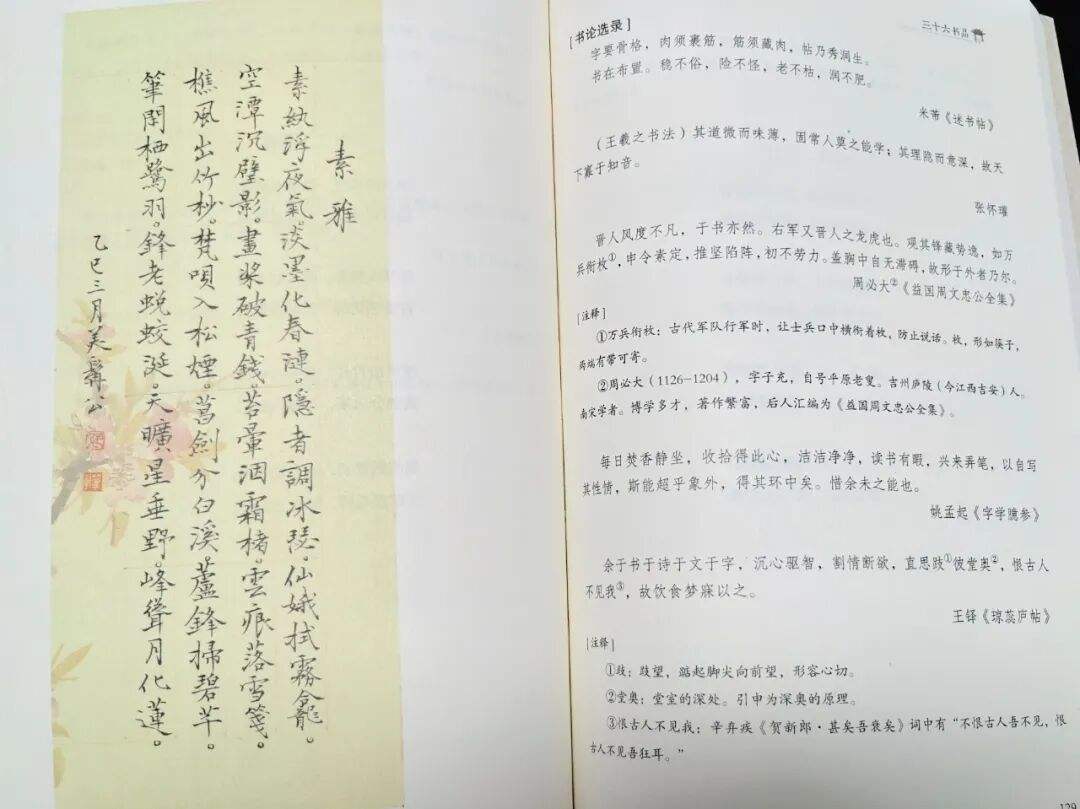 素雅
素紈浮夜氣。淡墨化春漣。隱者調冰瑟。仙娥拭霧龕。
空潭沉璧影。畫槳破青錢。苔暈洇霜楮。雲痕落雪箋。
樵風出竹杪。梵唄入松煙。菖劍分白溪。蘆鋒掃碧芊。
筆閑栖鷺羽。鋒老蛻蛟涎。天曠星垂野。峰聳月化蓮。
乙巳三月美髯公
三十六书品
[书论选录]
字要骨格，肉须裹筋，筋须藏肉，帖乃秀润生。
书在布置。稳不俗，险不怪，老不枯，润不肥。
米芾《迷书帖》
（王羲之书法）其道微而味薄，固常人莫之能学；其理隐而意深，故天
下寡于知音。
张怀瓘
晋人风度不凡，于书亦然。右军又晋人之龙虎也。观其锋藏势逸，如万
兵衔枚①，申令素定，推坚陷阵，初不劳力。盖胸中自无滞碍，故形于外者乃尔。
周必大②《益国周文忠公全集》
[注释]
①万兵衔枚：古代军队行军时，让士兵口中横衔着枚，防止说话。枚，形如筷子，
两端有带可寄。
②周必大（1126-1204），字子充，自号平原老叟。吉州庐陵（今江西吉安）人。
南宋学者。博学多才，著作繁富，后人汇编为《益国周文忠公全集》。
每日焚香静坐，收拾得此心，洁洁净净，读书有暇，兴来弄笔，以自写
其性情，斯能超乎象外，得其环中矣。惜余未之能也。
姚孟起《字学臆参》
余于书于诗于文于字，沉心驱智，割情断欲，直思跂①彼堂奥②，恨古人
不见我③，故饮食梦寐以之。
王铎《琼蕊庐帖》
[注释]
①跂：跂望，踮起脚尖向前望，形容心切。
②堂奥：堂室的深处。引申为深奥的原理。
③恨古人不见我：辛弃疾《贺新郎·甚矣吾衰矣》词中有“不恨古人吾不见，恨
古人不见吾狂耳。”
129